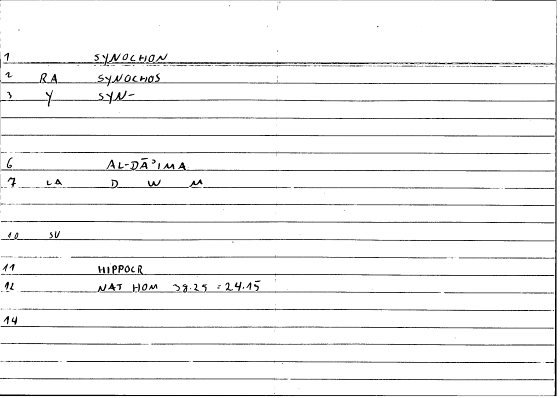 1 SYNOCHON
2 RA SYNOCHOS
3 Y SYN-
6 AL-DĀʾIMA
7 LA D W M
10 SV
11 HIPPOCR
12 NAT HOM 38.25 = 24.15
14